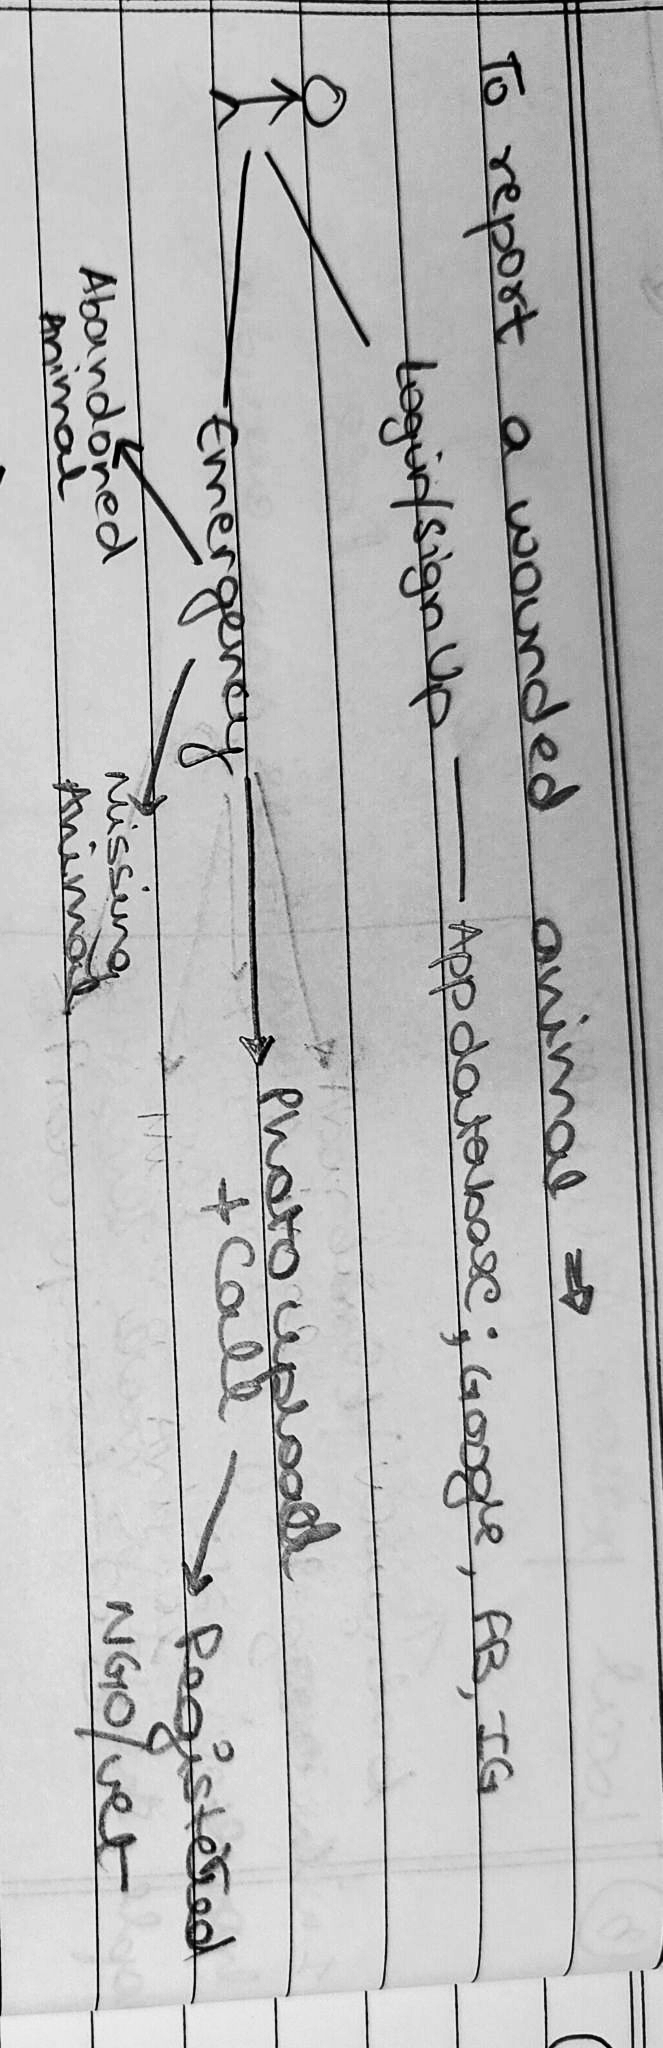 To report a wounded animal ⇒
Login/Sign Up — App database; Google, FB, IG
Emergency → Photo upload
+ Call → Registered
NGO/vet
Abandoned
Animal
Missing
Animal